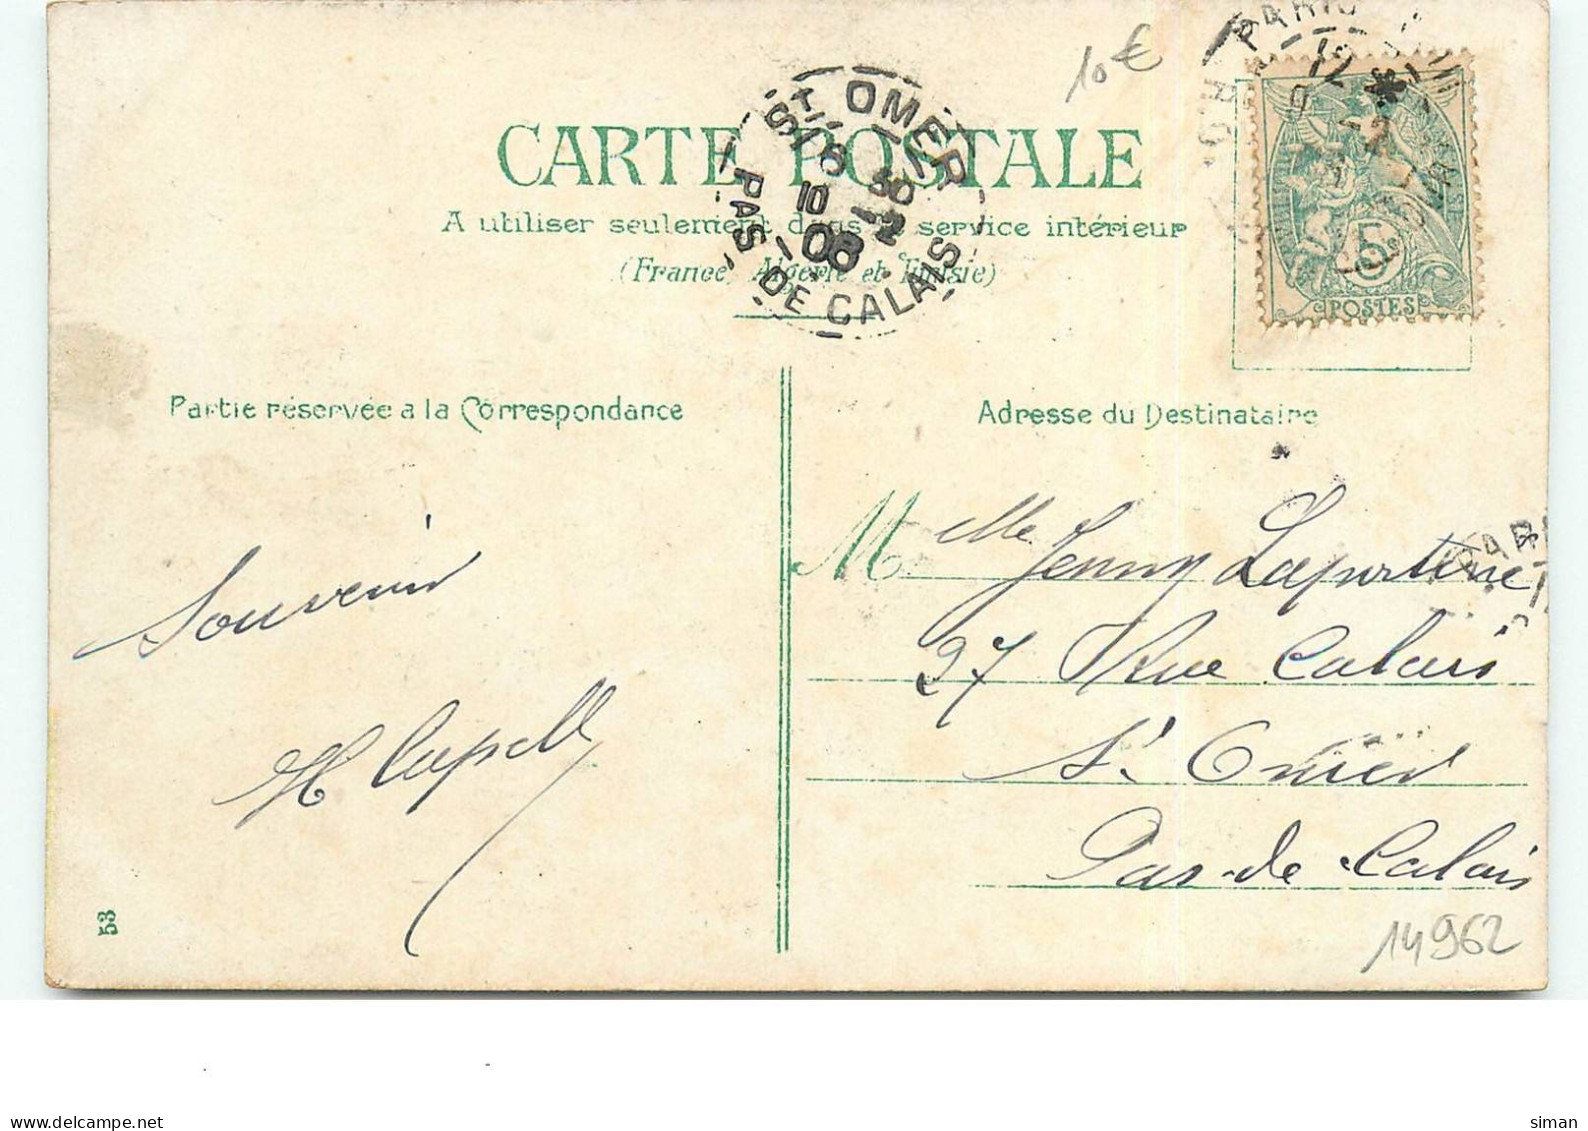 10€
CARTE POSTALE
A utiliser seulement dans le service intérieur
(France, Algérie et Tunisie)
ST OMER
PAS-DE-CALAIS
16 10
08
PARIS
5
POSTES
Partie réservée a la Correspondance
Adresse du Destinataire
Souvenir
H Capell
Melle Jenny Lapertine
27 Rue Calais
St Omer
Pas-de Calais
PAR
53
14962
www.delcampe.net
siman